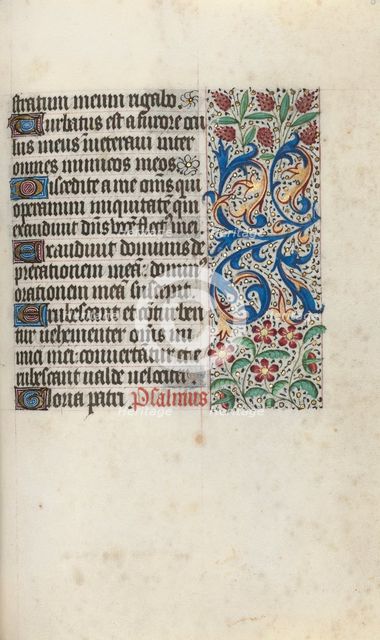 stratum meum rigabo
Turbatus est a furore ocu
lus meus inueteraui inter
omnes inimicos meos
Discedite a me oms qui
operamini iniquitate qm
exaudiuit dns uocem fletus mei
Exaudiuit dominus de
precationem mea: domin9
orationem mea suscepit
Erubescant et conturben
tur uehementer oms ini
mici mei: conuertatur et e
rubescant ualde uelociter
Gloria patri Psalmus
heritage
heritage